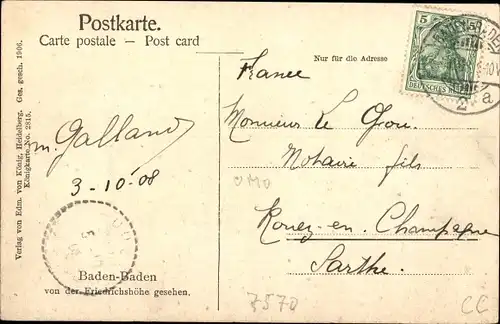 Postkarte.
Carte postale – Post card
Nur für die Adresse
5
DEUTSCHES REICH
a
France
Monsieur Le Grou
Notaire fils
Rouez-en-Champagne
Sarthe.
m. Galland
3-10-08
Baden-Baden
von der Friedrichshöhe gesehen.
Verlag von Edm. von König, Heidelberg. Ges. gesch. 1906.
Königkarte No. 2815.
7570
CC